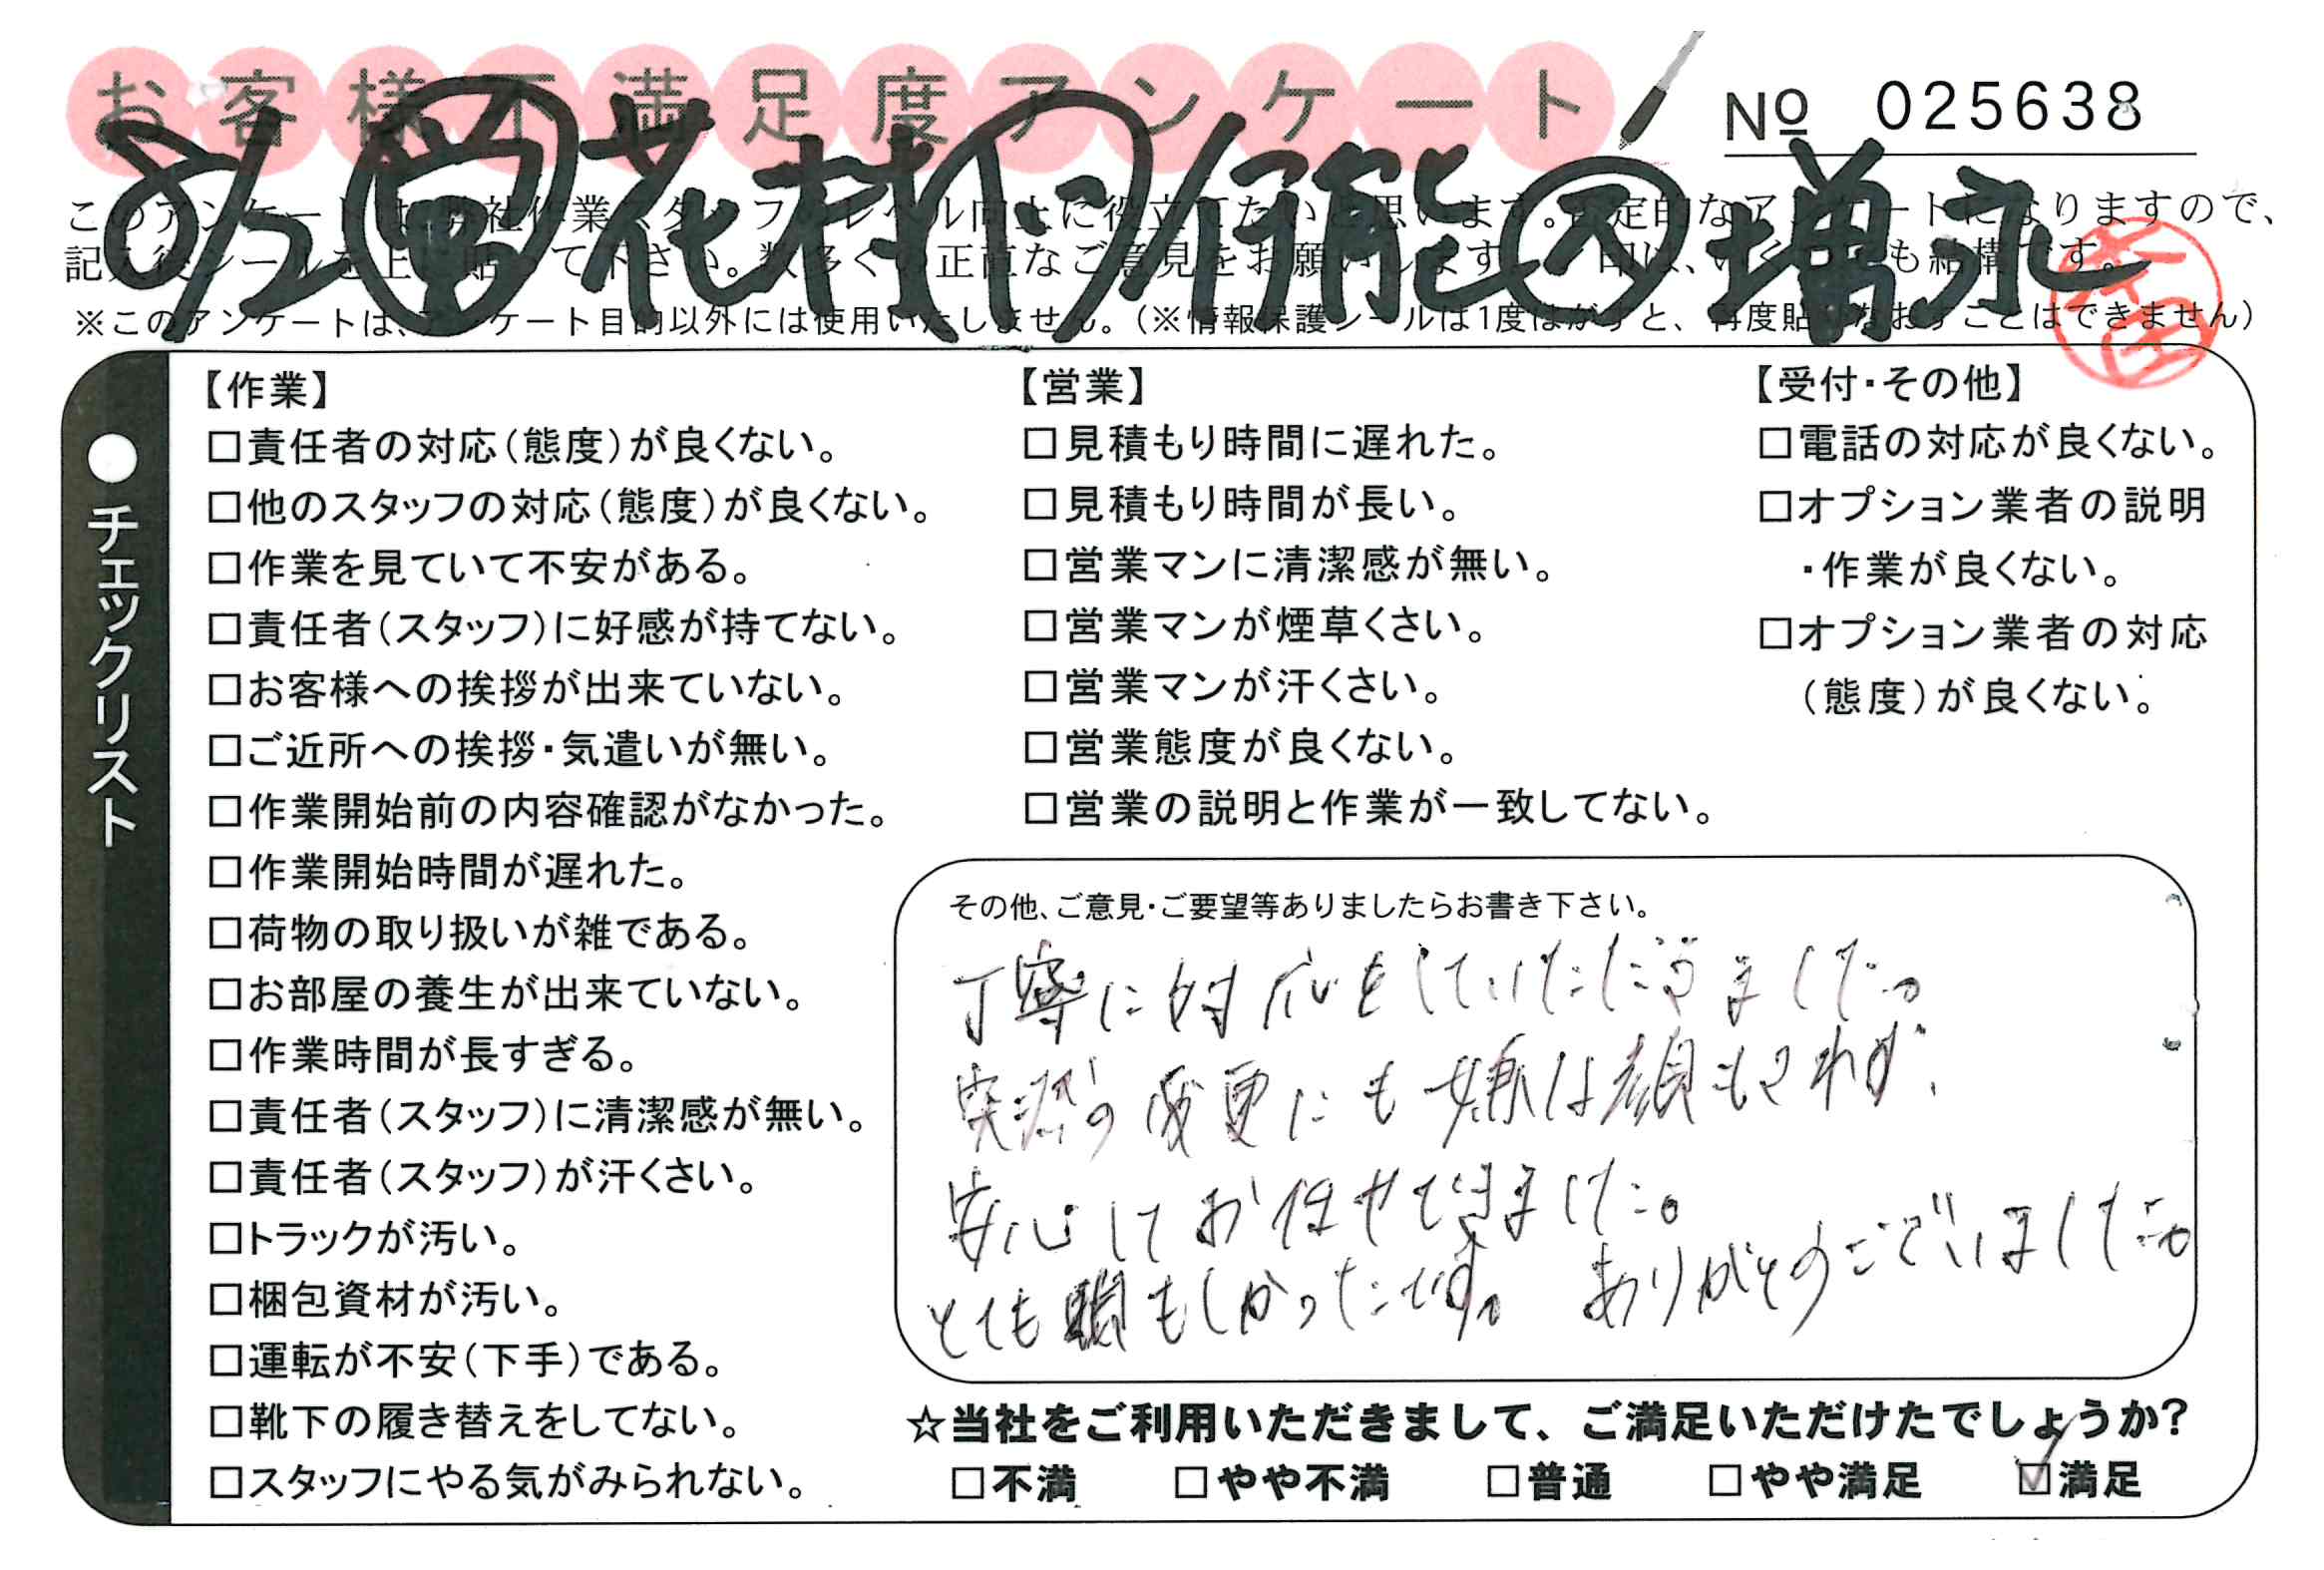 お客様不満足度アンケート
№ 025638
8/2 営 花村 行能 増永
このアンケートは、弊社作業スタッフのレベル向上に役立てたいと思います。否定的なアンケートになりますので、
記入後シールを上に貼って下さい。数多くの正直なご意見をお願いします。
※このアンケートは、アンケート目的以外には使用いたしません。(※情報保護シールは1度はがすと、再度貼りなおすことはできません)
●チェックリスト
【作業】
□責任者の対応(態度)が良くない。
□他のスタッフの対応(態度)が良くない。
□作業を見ていて不安がある。
□責任者(スタッフ)に好感が持てない。
□お客様への挨拶が出来ていない。
□ご近所への挨拶・気遣いが無い。
□作業開始前の内容確認がなかった。
□作業開始時間が遅れた。
□荷物の取り扱いが雑である。
□お部屋の養生が出来ていない。
□作業時間が長すぎる。
□責任者(スタッフ)に清潔感が無い。
□責任者(スタッフ)が汗くさい。
□トラックが汚い。
□梱包資材が汚い。
□運転が不安(下手)である。
□靴下の履き替えをしてない。
□スタッフにやる気がみられない。
【営業】
□見積もり時間に遅れた。
□見積もり時間が長い。
□営業マンに清潔感が無い。
□営業マンが煙草くさい。
□営業マンが汗くさい。
□営業態度が良くない。
□営業の説明と作業が一致してない。
【受付・その他】
□電話の対応が良くない。
□オプション業者の説明
・作業が良くない。
□オプション業者の対応
(態度)が良くない。
その他、ご意見・ご要望等ありましたらお書き下さい。
丁寧に対応をしていただきました。
突然の変更にも嫌な顔もされず、
安心してお任せできました。
とても頼もしかったです。ありがとうございました。
☆当社をご利用いただきまして、ご満足いただけたでしょうか?
□不満 □やや不満 □普通 □やや満足 ☑満足